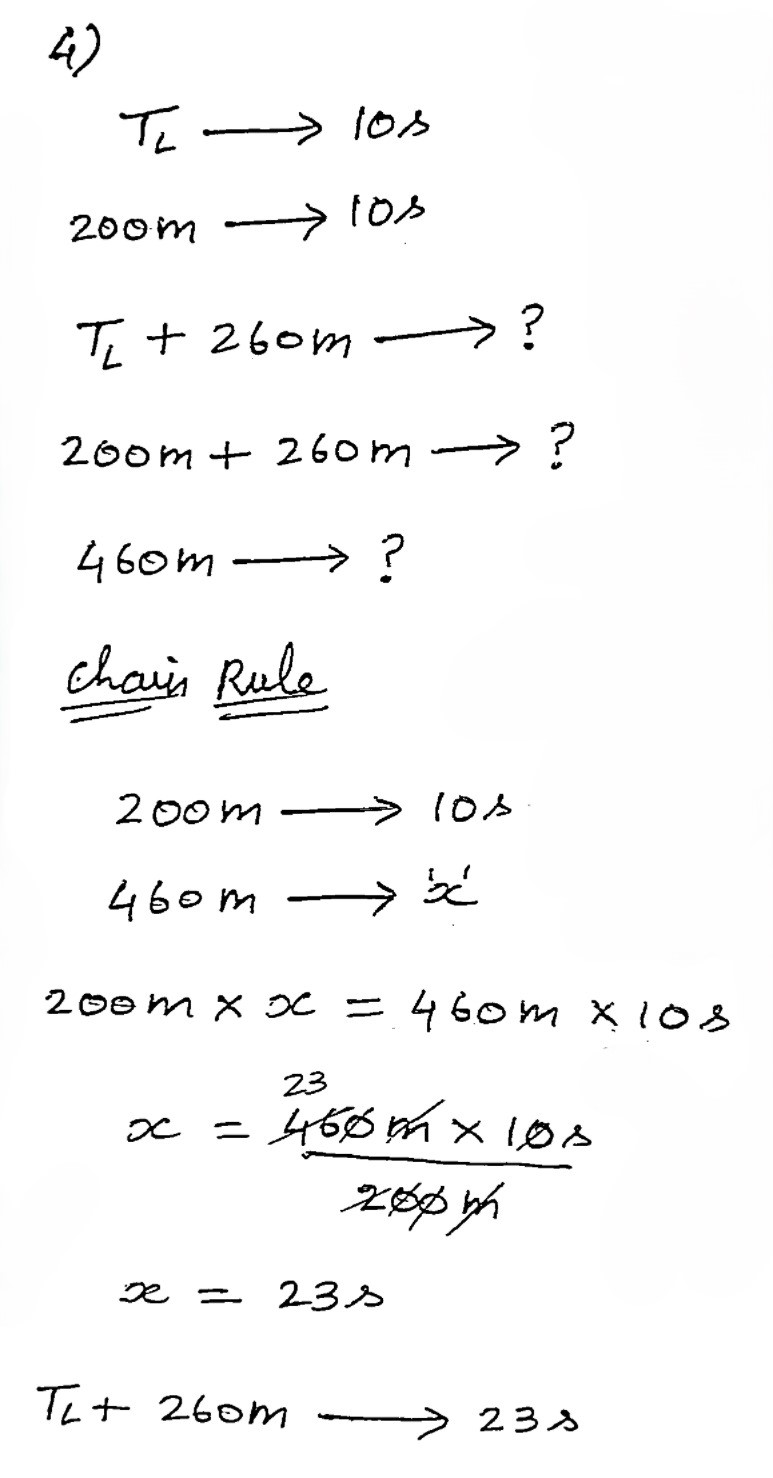 4)
T_L → 10s
200m → 10s
T_L + 260m → ?
200m + 260m → ?
460m → ?
Chain Rule
200m → 10s
460m → 'x'
200m × x = 460m × 10s
23
x = 460m × 10s
200m
x = 23s
T_L + 260m → 23s